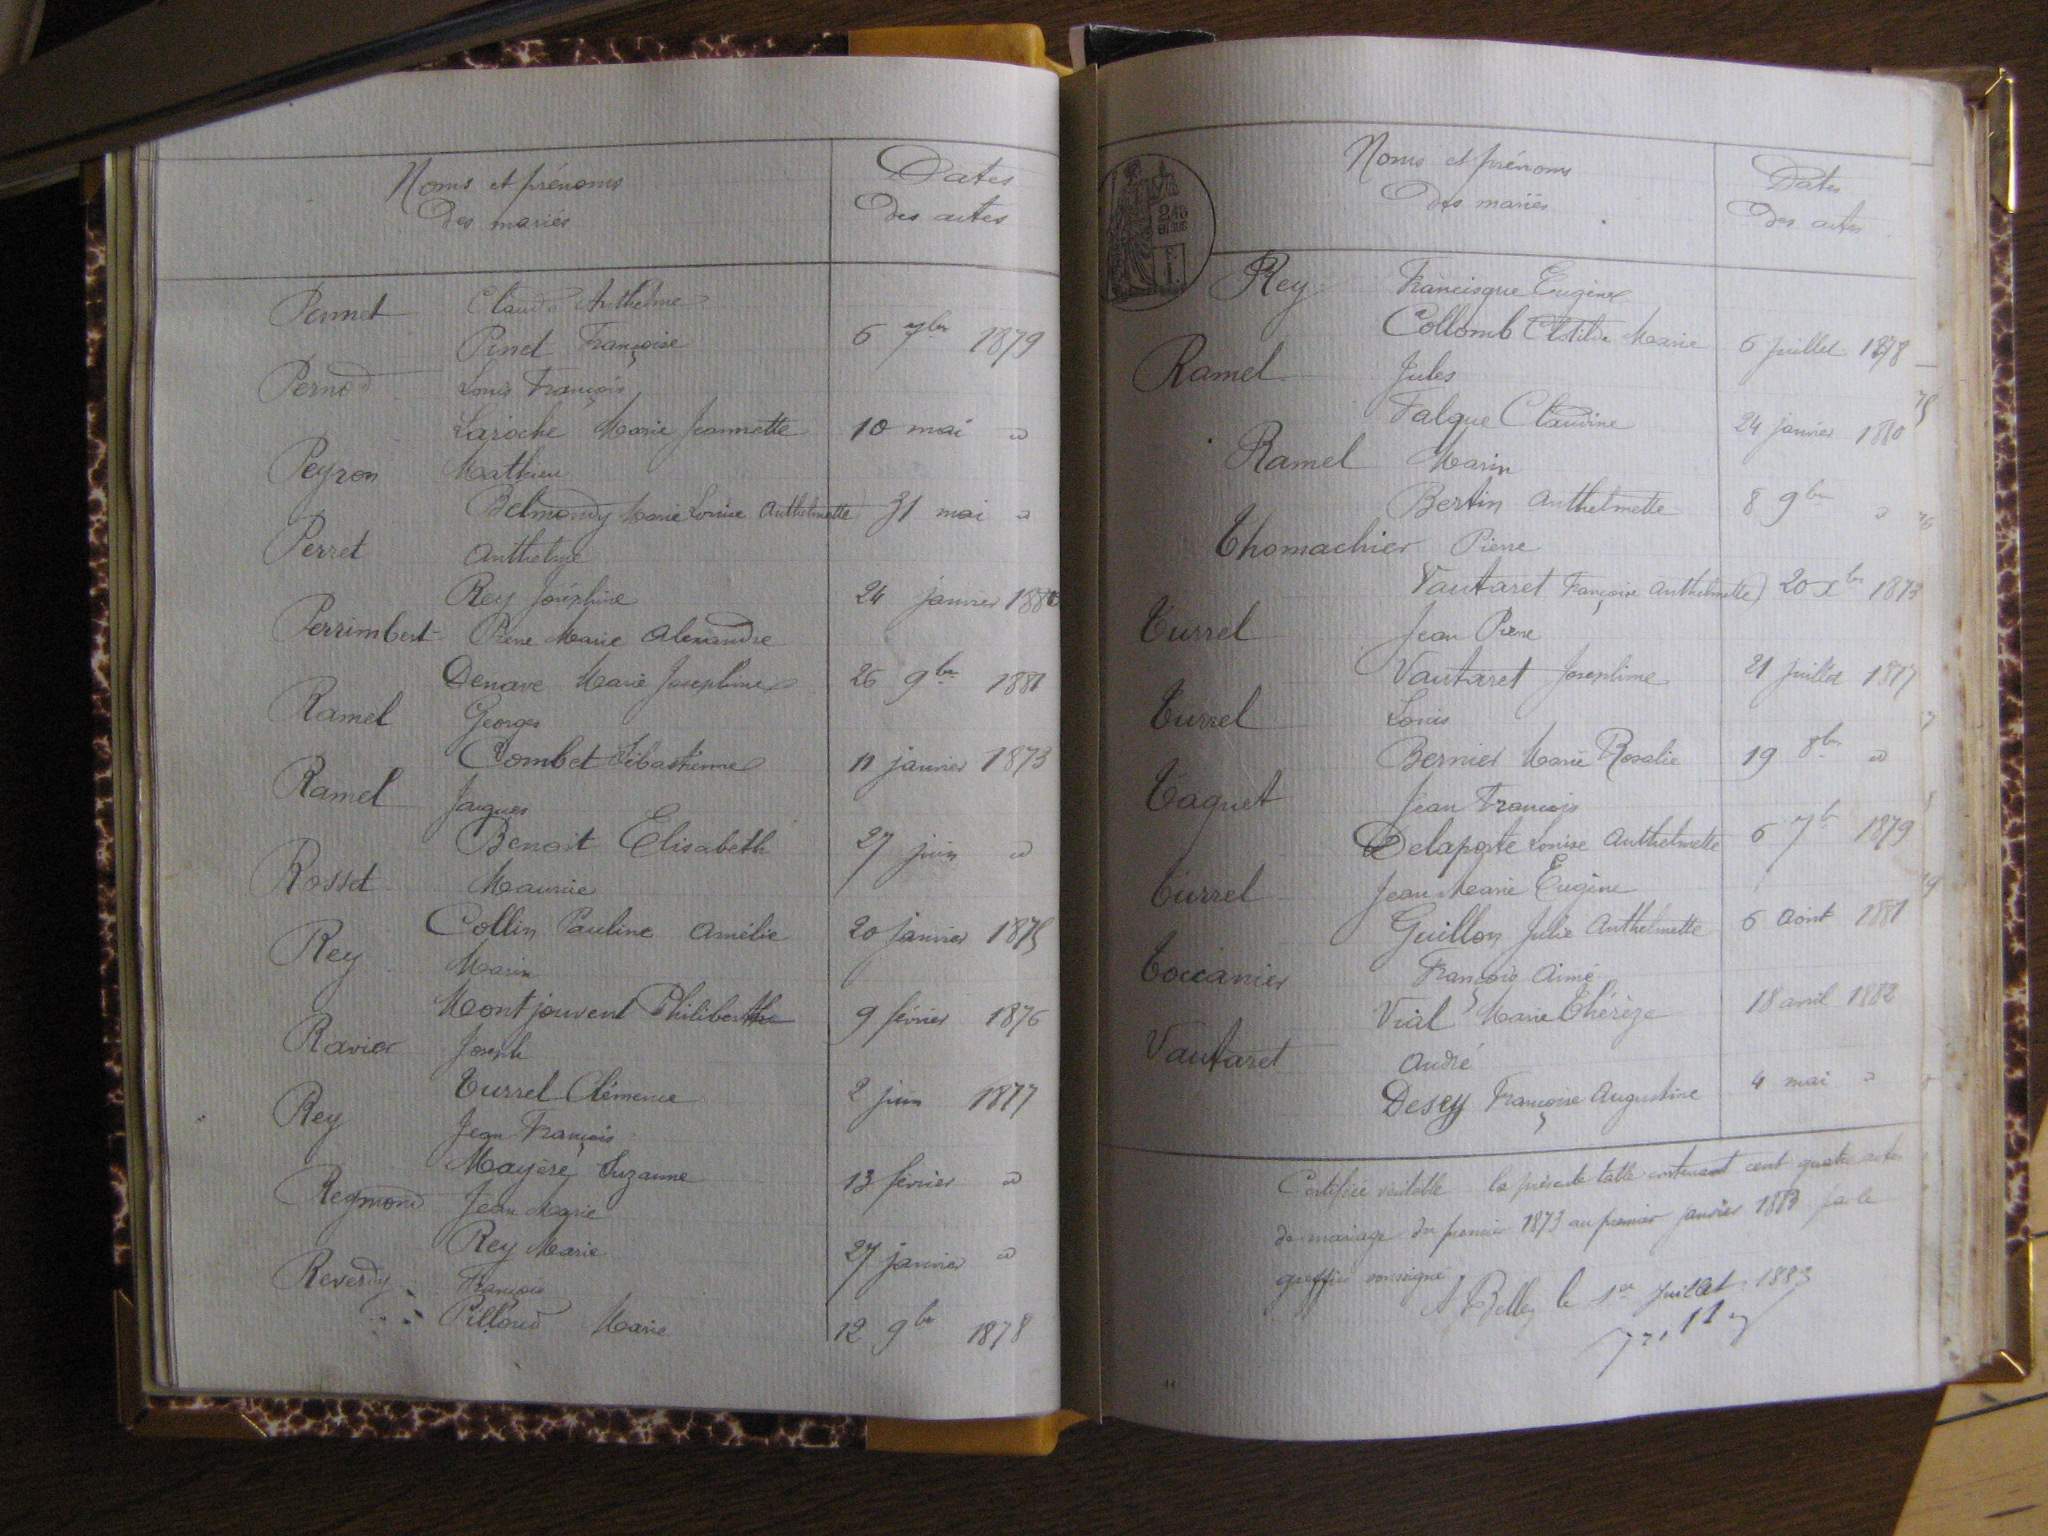 Noms et prénoms
Des mariés
Dates
Des actes
Pennet Claude Anthelme
Pinet Françoise 6 7bre 1879
Pernod Louis François
Laroche Marie Jeannette 10 mai d
Peyron Mathieu
Belmondy Marie Louise Anthelmette 31 mai d
Perret Anthelme
Rey Joséphine 24 janvier 1880
Perrimbert Pierre Marie Alexandre
Denave Marie Josephine 26 9bre 1881
Ramel Georges
Combet Sébastienne 11 janvier 1873
Ramel Jacques
Benoit Elisabeth 27 juin d
Rosset Maurice
Collin Pauline Amélie 20 janvier 1875
Rey Marin
Montjouvent Philiberthe 9 février 1876
Ravier Joseph
Turrel Clémence 2 juin 1877
Rey Jean François
Mayére Suzanne 13 février d
Reymond Jean Marie
Rey Marie 27 janvier d
Reverdy François
Pilloud Marie 12 9bre 1878
Noms et prénoms
des mariés
Dates
Des actes
Rey Francisque Eugène
Collomb Clotilde Marie 6 juillet 1878
Ramel Jules
Falque Claudine 24 janvier 1880
Ramel Marin
Bertin Anthelmette 8 9bre d
Thomachier Pierre
Vautaret Françoise Anthelmette 20 Xbre 1873
Turrel Jean Pierre
Vautaret Josephine 21 juillet 1877
Turrel Louis
Bernier Marie Rosalie 19 8bre d
Taguet Jean François
Delaporte Louise Anthelmette 6 7b 1879
Turrel Jean Marie Eugène
Guillon Julie Anthelmette 6 Aout 1881
Toccanier François Aimé
Vial Marie Thérèze 18 avril 1882
Vautaret André
Desey Françoise Augustine 4 mai d
Certifiée véritable la présente table contenant cent quatre actes
de mariage du premier 1873 au premier janvier 1883 par le
greffier soussigné
A Belley le 1er juillet 1883